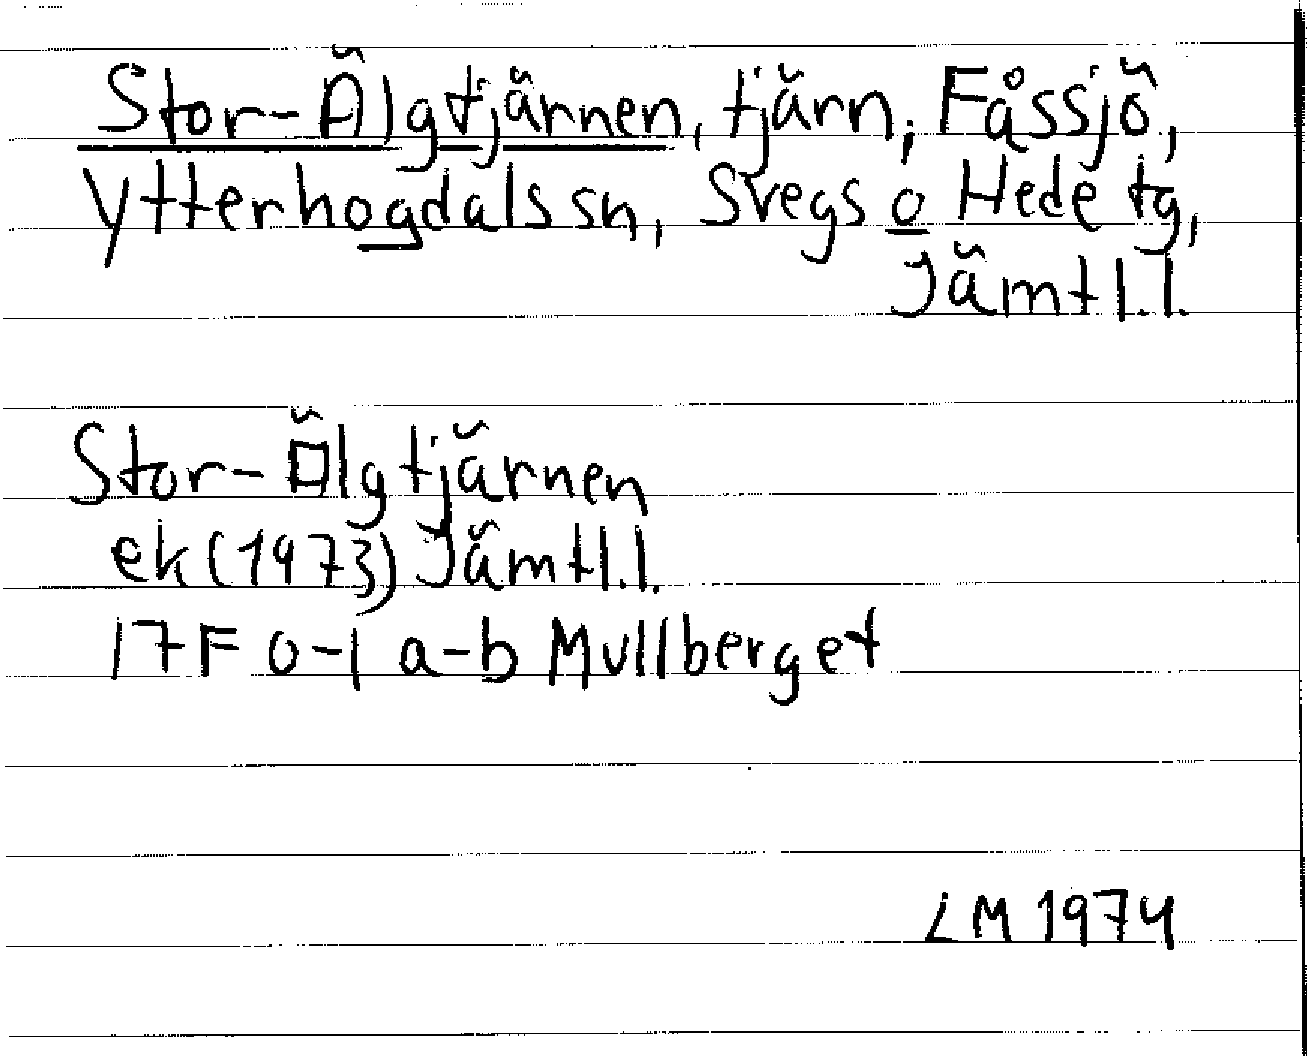 Stor-Älgtjärnen, tjärn, Fåssjö,
Ytterhogdals sn, Svegs o Hede tg,
Jämtl.l.
Stor-Älgtjärnen
ek (1973) Jämtl.l.
17F 0-1 a-b Mullberget
LM 1974